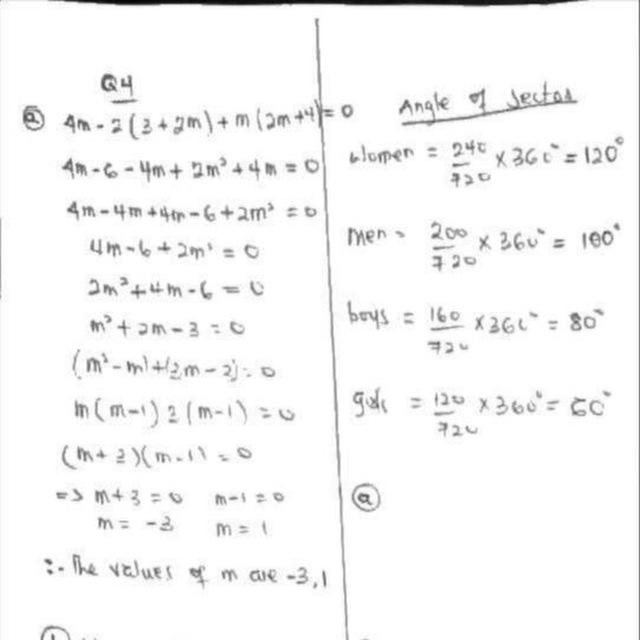 Q4
ⓐ 4m - 2(3 + 2m) + m(2m+4) = 0
4m - 6 - 4m + 2m² + 4m = 0
4m - 4m + 4m - 6 + 2m² = 0
4m - 6 + 2m² = 0
2m² + 4m - 6 = 0
m² + 2m - 3 = 0
(m² - m) + (3m - 3) = 0
m(m-1) 3(m-1) = 0
(m + 3)(m-1) = 0
=> m + 3 = 0 m - 1 = 0
m = -3 m = 1
:- The values of m are -3, 1
Angle of Sector
Women = 240/720 × 360° = 120°
Men = 200/720 × 360° = 100°
boys = 160/720 × 360° = 80°
girls = 120/720 × 360° = 60°
ⓐ